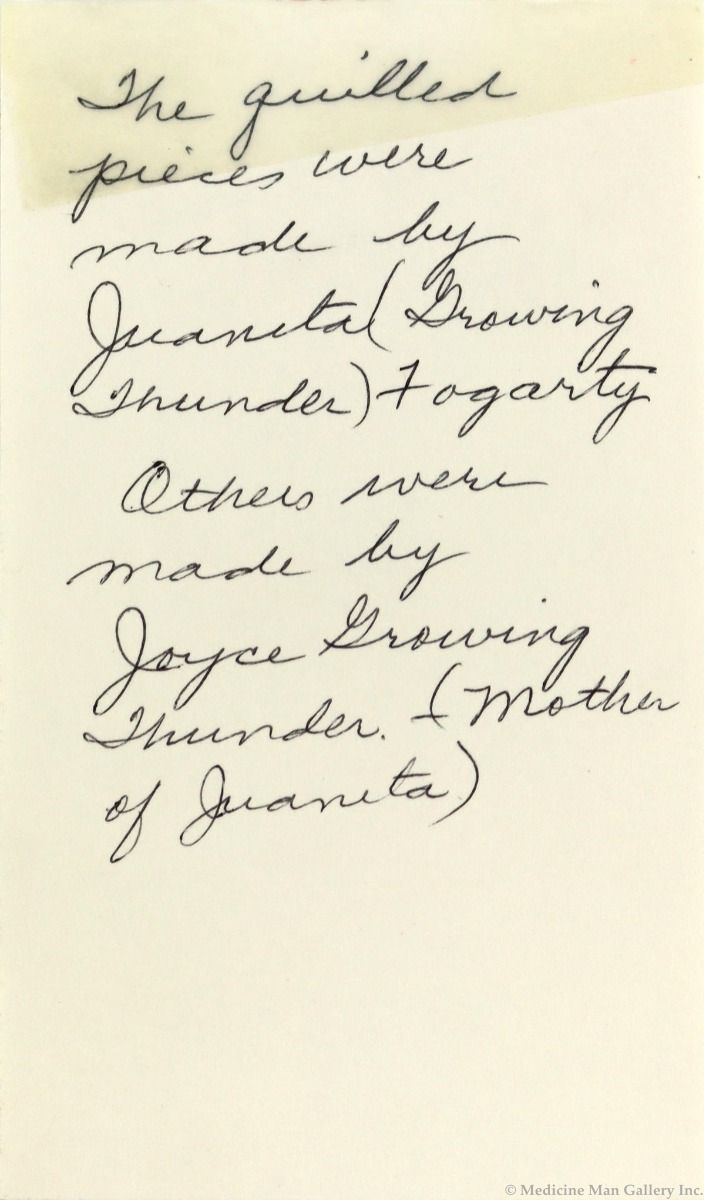 The quilled
pieces were
made by
Juanita (Growing
Thunder) Fogarty
Others were
made by
Joyce Growing
Thunder. (Mother
of Juanita)
© Medicine Man Gallery Inc.